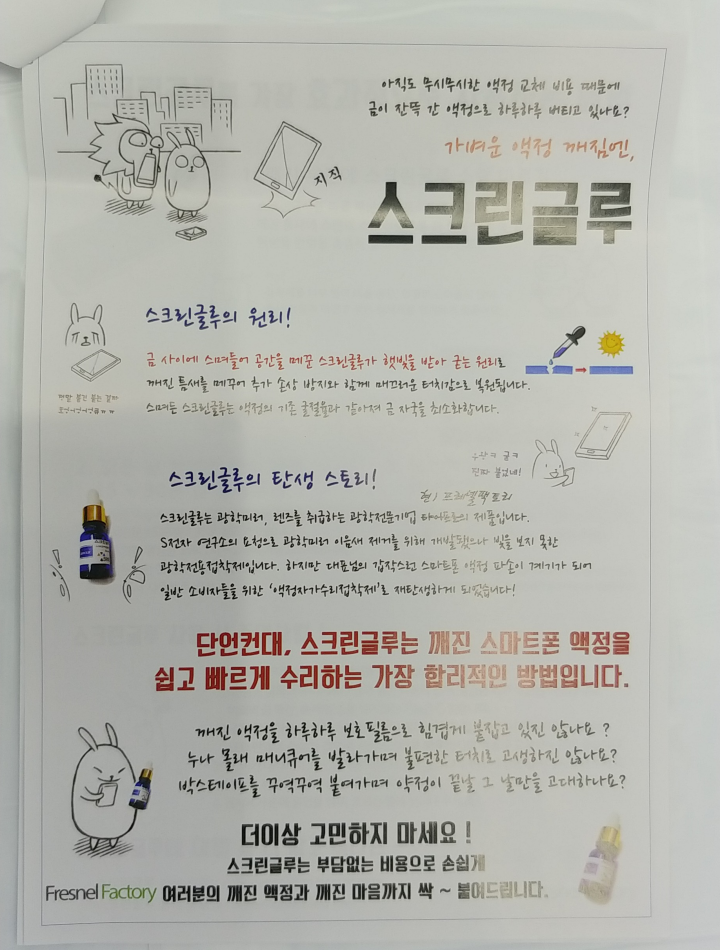 아직도 무시무시한 액정 교체 비용 때문에
금이 잔뜩 간 액정으로 하루하루 버티고 있나요?
가벼운 액정 깨짐엔,
지직
스크린글루
스크린글루의 원리!
금 사이에 스며들어 공간을 메꾼 스크린글루가 햇빛을 받아 굳는 원리로
깨진 틈새를 메꾸어 추가 손상 방지와 함께 매끄러운 터치감으로 복원됩니다.
스며든 스크린글루는 액정의 기존 굴절율과 같아져 금 자국을 최소화합니다.
진짜 붙었네!
스크린글루의 탄생 스토리!
현) 프레넬팩토리
스크린글루는 광학미러, 렌즈를 취급하는 광학전문기업 의 제품입니다.
S전자 연구소의 요청으로 광학미러 이음새 제거를 위해 개발됐으나 빛을 보지 못한
광학전용접착제입니다. 하지만 대표님의 갑작스런 스마트폰 액정 파손이 계기가 되어
일반 소비자들을 위한 '액정자가수리접착제'로 재탄생하게 되었습니다!
단언컨대, 스크린글루는 깨진 스마트폰 액정을
쉽고 빠르게 수리하는 가장 합리적인 방법입니다.
깨진 액정을 하루하루 보호필름으로 힘겹게 붙잡고 있진 않나요 ?
누나 몰래 매니큐어를 발라가며 불편한 터치로 고생하진 않나요?
박스테이프를 꾸역꾸역 붙여가며 약정이 끝날 그 날만을 고대하나요?
더이상 고민하지 마세요 !
스크린글루는 부담없는 비용으로 손쉽게
Fresnel Factory 여러분의 깨진 액정과 깨진 마음까지 싹 ~ 붙여드립니다.